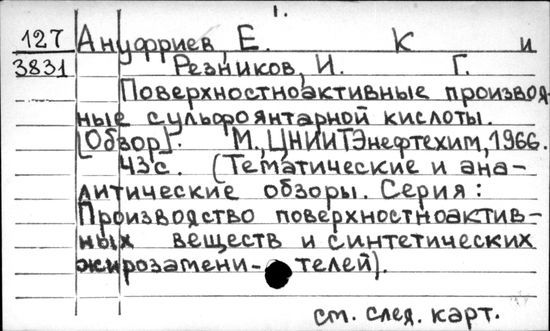 1.
127 Ануфриев, Е. К и
3831 Резников, И. Г.
Поверхностноактивные производ-
ные сульфоянтарной кислоты.
[Обзор]. М., ЦНИИТЭнефтехим, 1966.
43 с. (Тематические и ана-
литические обзоры. Серия:
Производство поверхностноактив-
ных веществ и синтетических
жирозамени- телей).
см. след. карт.